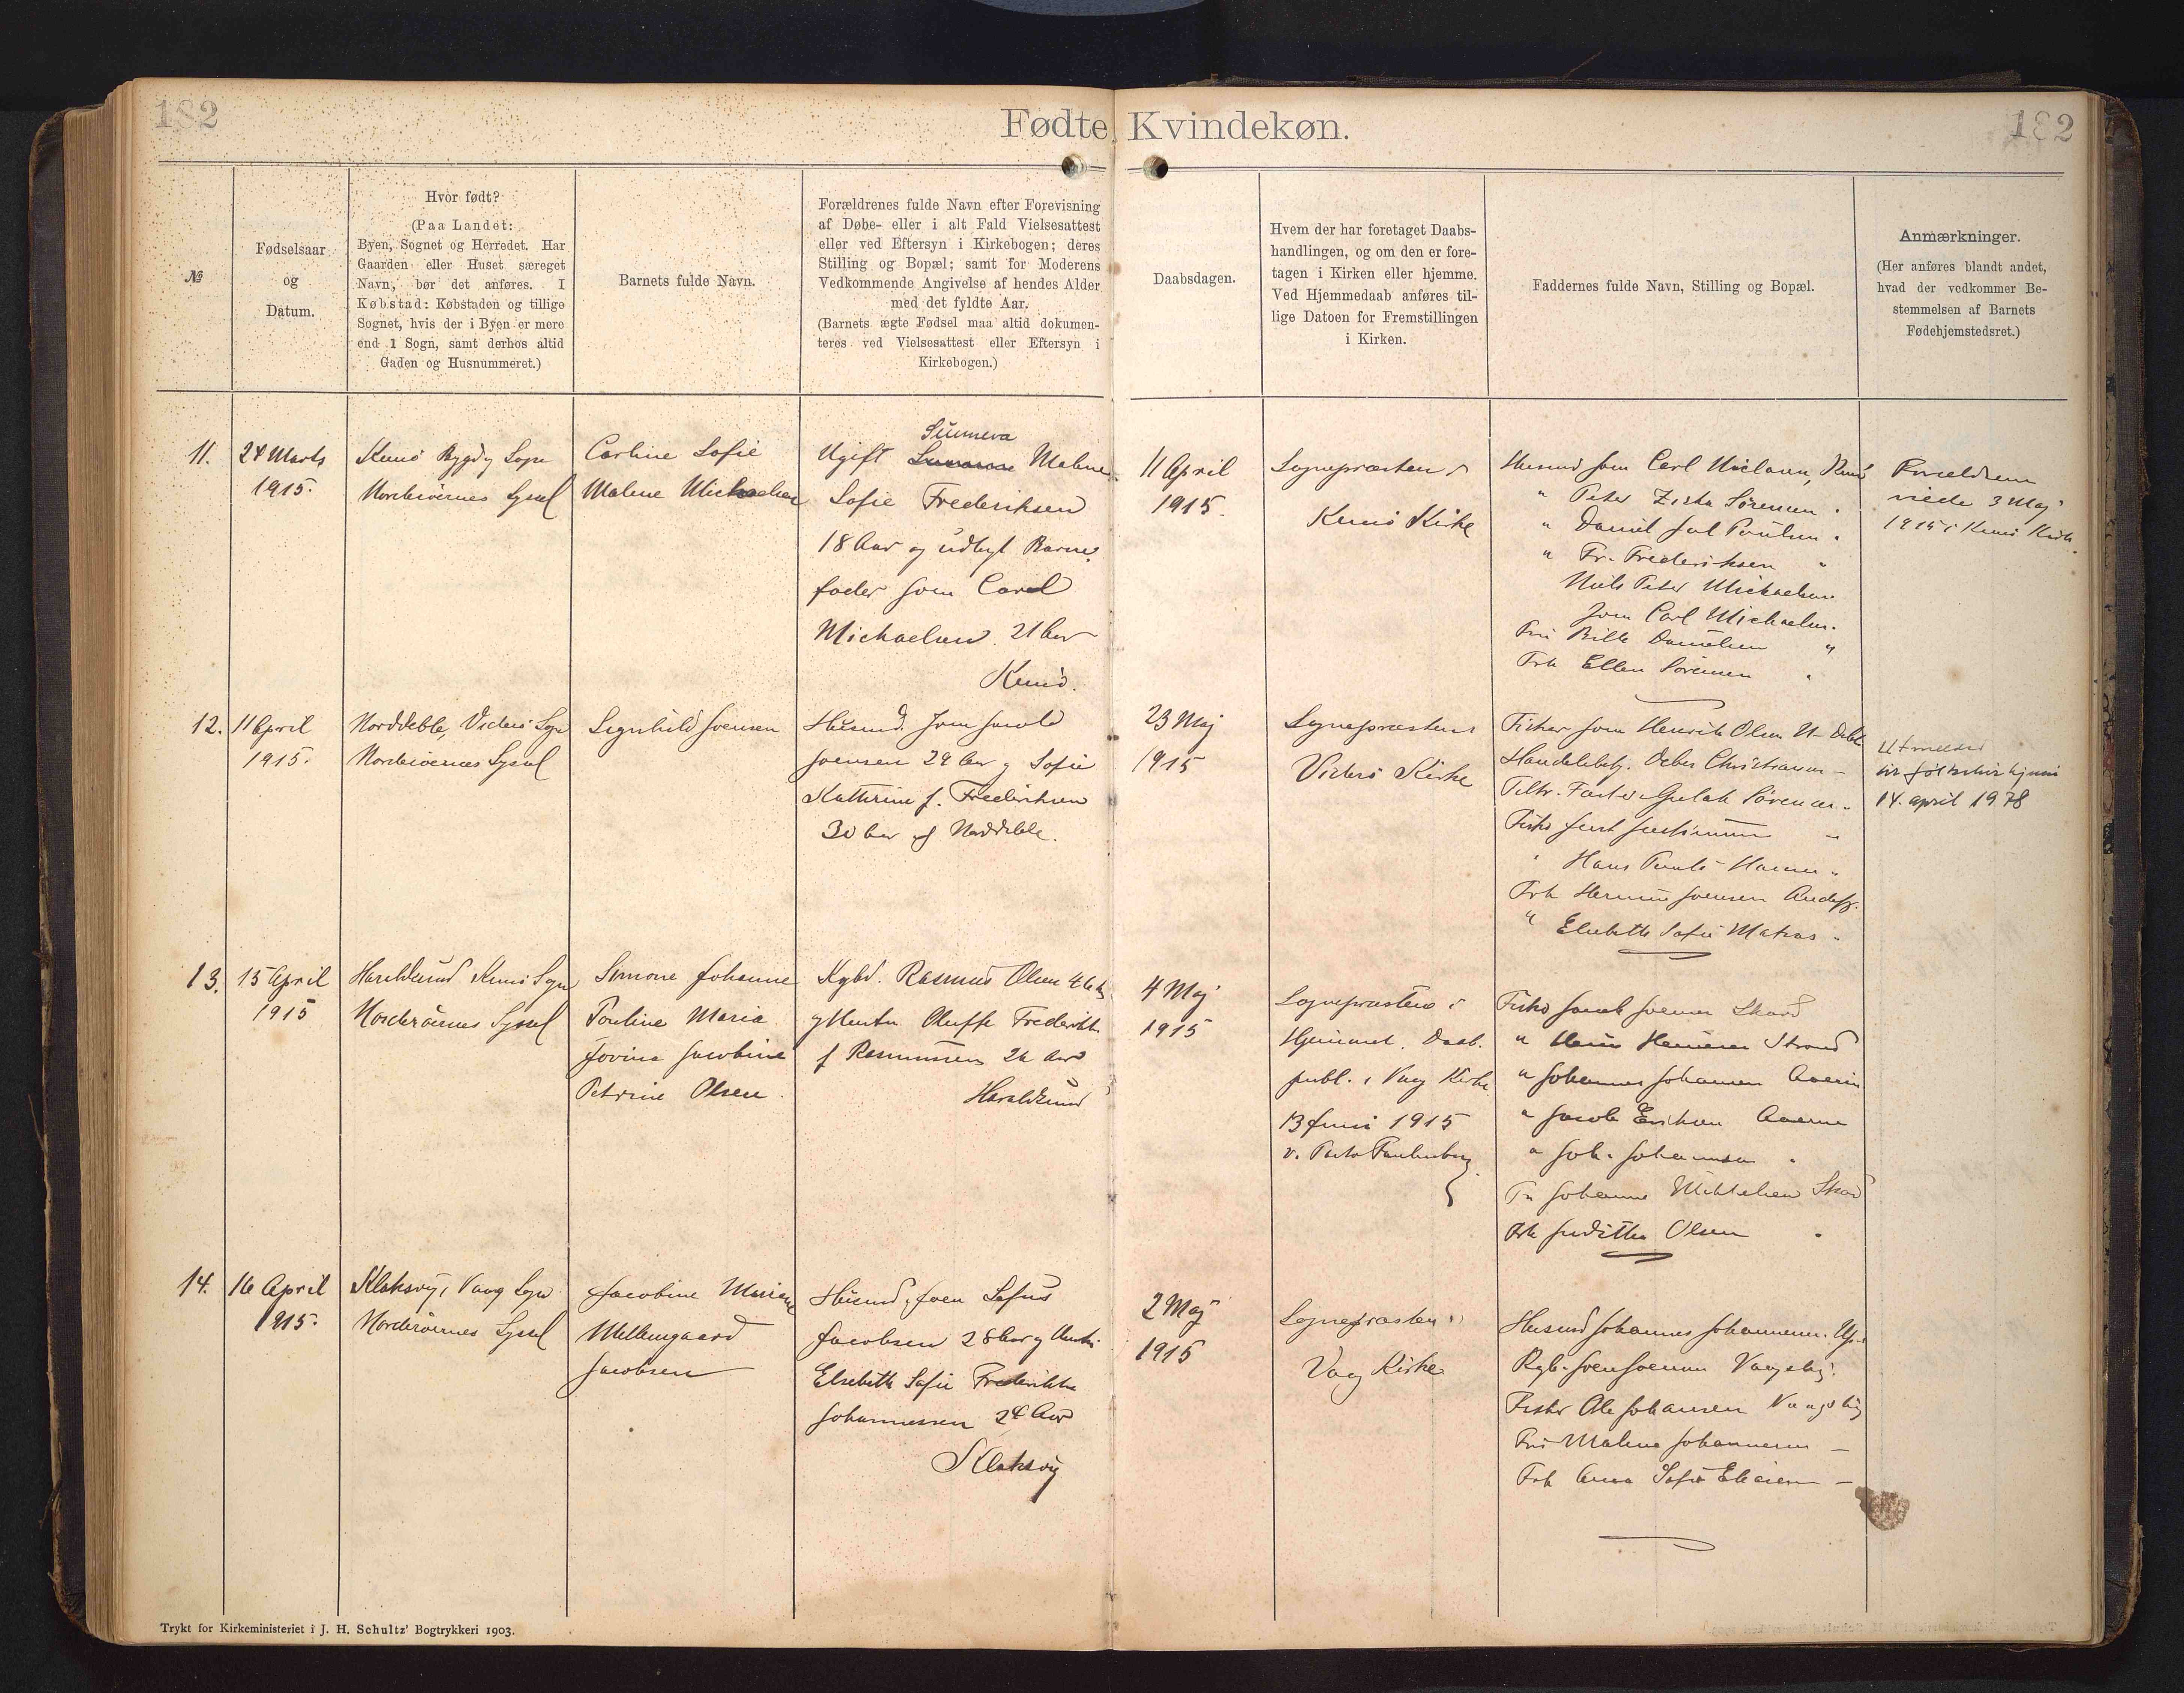 182
Fødte Kvindekøn.
182
№
Fødselsaar
og
Datum.
Hvor født?
(Paa Landet:
Byen, Sognet og Herredet. Har
Gaarden eller Huset særeget
Navn, bør det anføres. I
Købstad: Købstaden og tillige
Sognet, hvis der i Byen er mere
end 1 Sogn, samt derhos altid
Gaden og Husnummeret.)
Barnets fulde Navn.
Forældrenes fulde Navn efter Forevisning
af Døbe- eller i alt Fald Vielsesattest
eller ved Eftersyn i Kirkebogen; deres
Stilling og Bopæl; samt for Moderens
Vedkommende Angivelse af hendes Alder
med det fyldte Aar.
(Barnets ægte Fødsel maa altid dokumen-
teres ved Vielsesattest eller Eftersyn i
Kirkebogen.)
Daabsdagen.
Hvem der har foretaget Daabs-
handlingen, og om den er fore-
tagen i Kirken eller hjemme.
Ved Hjemmedaab anføres til-
lige Datoen for Fremstillingen
i Kirken.
Faddernes fulde Navn, Stilling og Bopæl.
Anmærkninger.
(Her anføres blandt andet,
hvad der vedkommer Be-
stemmelsen af Barnets
Fødehjemstedsret.)
11.
24 Marts
1915.
Kunö Bygd, Sogn
Norderöernes Syssel
Carline Sofie
Malene Michaelsen
Sunneva
Ugift Malene
Sofie Frederiksen
18 Aar og udlagt Barne-
fader Joen Carl
Michaelsen 21 Aar
Kunö.
11 April
1915.
Sognepræsten i
Kunö Kirke
Peter Zista Sörensen
Fr. Frederiksen
Niels Peter Michaelsen
Joen Carl Michaelsen.
Billa Danielsen
Frk Ellen Sörensen
Forældrene
viede 3 Maj
1915 i Kunö Kirke.
12.
11 April
1915.
Norddeble, Viderö Sogn
Norderöernes Syssel
Signhild Joensen
Husmd. Joen Jacob
Joensen 29 Aar og Sofie
Kathrine f. Frederiksen
30 Aar af Norddeble.
23 Maj
1915
Sognepræsten i
Viderö Kirke
Fisker Joen Henrik Olsen N-Deble
Hans Pauli Hansen
Frk Joensen
Elsebeth Sofie Matras
14. april 1978
13.
15 April
1915
Haraldsund Kunö Sogn
Norderöernes Syssel
Simone Johanne
Pouline Maria
Jovina Jacobine
Petrine Olsen
Kgbd. Rasmus Olsen
og Hustru Oluffa Frederikke
f Rasmussen 26 Aar
Haraldsund
4 Maj
1915
Sognepræsten i
Hjemmet. Daab.
publ. i Vaag Kirke
13 Juni 1915
Fisker Jacob Joensen Skaard
Johannes Johansen
Jacob Eriksen
Joh. Johannesen
Johanne Mikkelsen Skaard
Frk Juditha Olsen
14.
16 April
1915.
Klaksvig, Vaag Sogn
Norderöernes Syssel
Jacobine Mariane
Mellemgaard
Jacobsen
Husmd. Joen Sofus
Jacobsen 28 Aar og Hustru
Elsebeth Sofie Frederikke
Johannesen 24 Aar
Klaksvig
2 Maj
1915
Sognepræsten i
Vaag Kirke
Husmd Johannes Johannesen.
Joen Joensen Vaagsbig.
Fisker Ole Johansen Vaagsbig
Fru Malene Johannesen
Frk Anna Sofie Eliasen
Trykt for Kirkeministeriet i J. H. Schultz' Bogtrykkeri 1903.